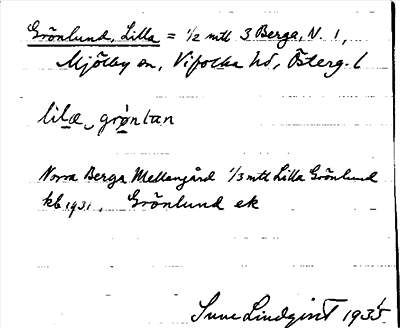 Grönlund, Lilla = 1/2 mtl 3 Berga, N. 1,
Mjölby sn, Vifolka hd, Österg. l
lilæ grøntan
Norra Berga Mellangård 1/3 mtl Lilla Grönlund
kb 1931, Grönlund ek
Sune Lindqvist 1935